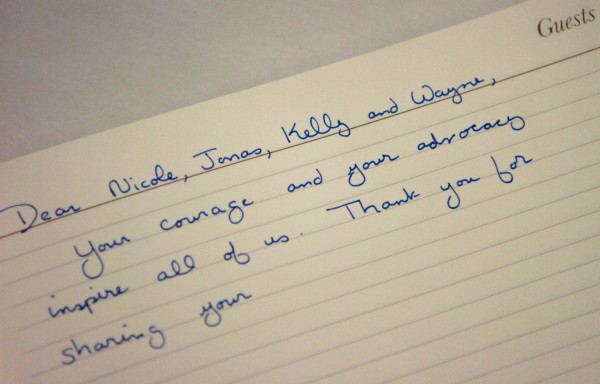 Guests
Dear Nicole, Jonas, Kelly and Wayne,
Your courage and your advocacy
inspire all of us. Thank you for
sharing your